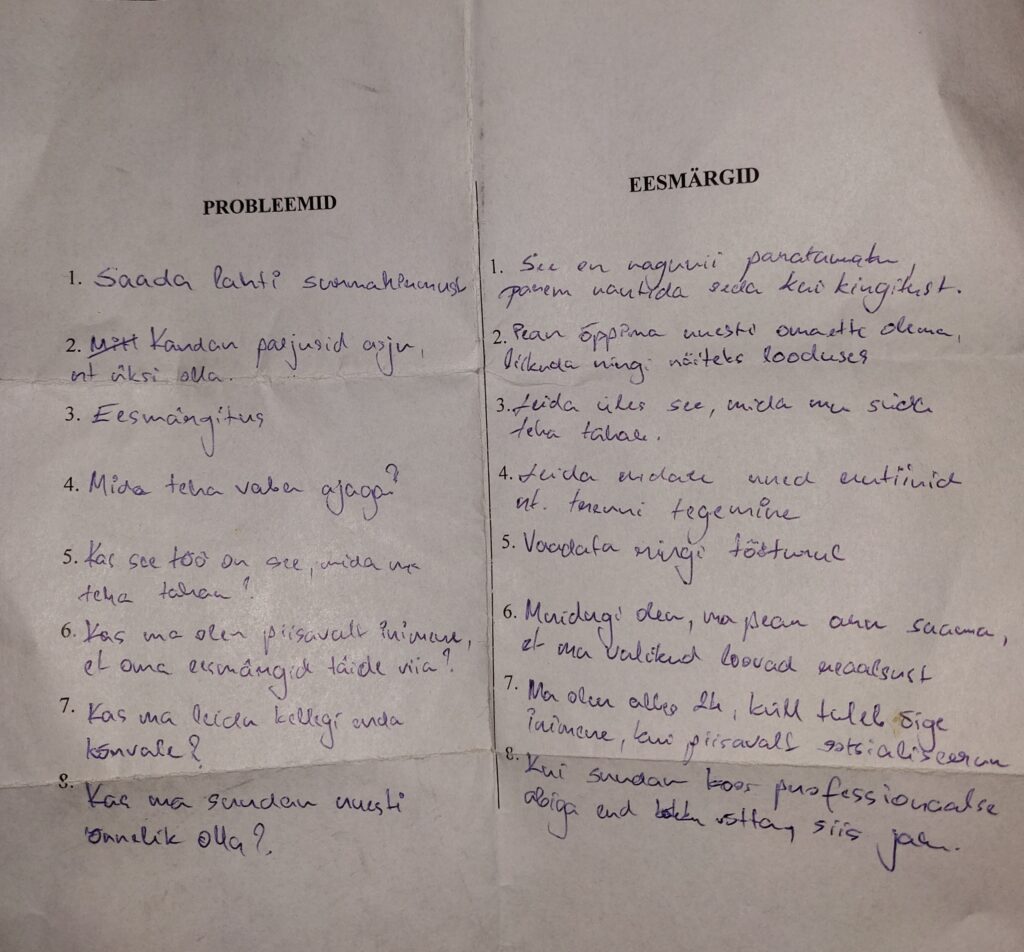 PROBLEEMID
1. Saada lahti surmahirmust
2. Mitt Kandan paljusid asju,
nt üksi olla.
3. Eesmärgitus
4. Mida teha vaba ajaga?
5. Kas see töö on see, mida ma
teha tahan?
6. Kas ma olen piisavalt inimene,
et oma eesmärgid täide viia?
7. Kas ma leidu kellegi enda
kõrvale?
8.
Kas ma suudan uuesti
õnnelik olla?
EESMÄRGID
1. See on nagunii paratamatu,
parem nautida seda kui kingitust.
2. Pean õppima uuesti omaette olema,
liikuda ringi näiteks looduses
3. Leida üles see, mida mu süda
teha tahab.
4. Leida endale uued rutiinid
nt. trenni tegemine
5. Vaadata ringi tööturul
6. Muidugi olen, ma pean aru saama,
et ma valikud loovad reaalsust
7. Ma olen alles 24, küll tuleb õige
inimene, kui piisavalt sotsialiseerun
8. Kui suudan koos professionaalse
abiga end kokku võtta, siis jah.